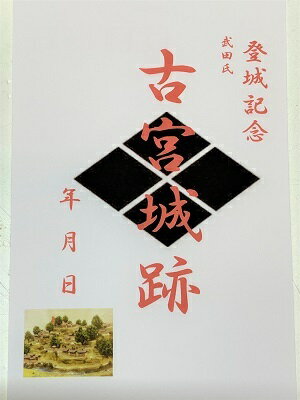 登城記念
武田氏
古宮城跡
年月日